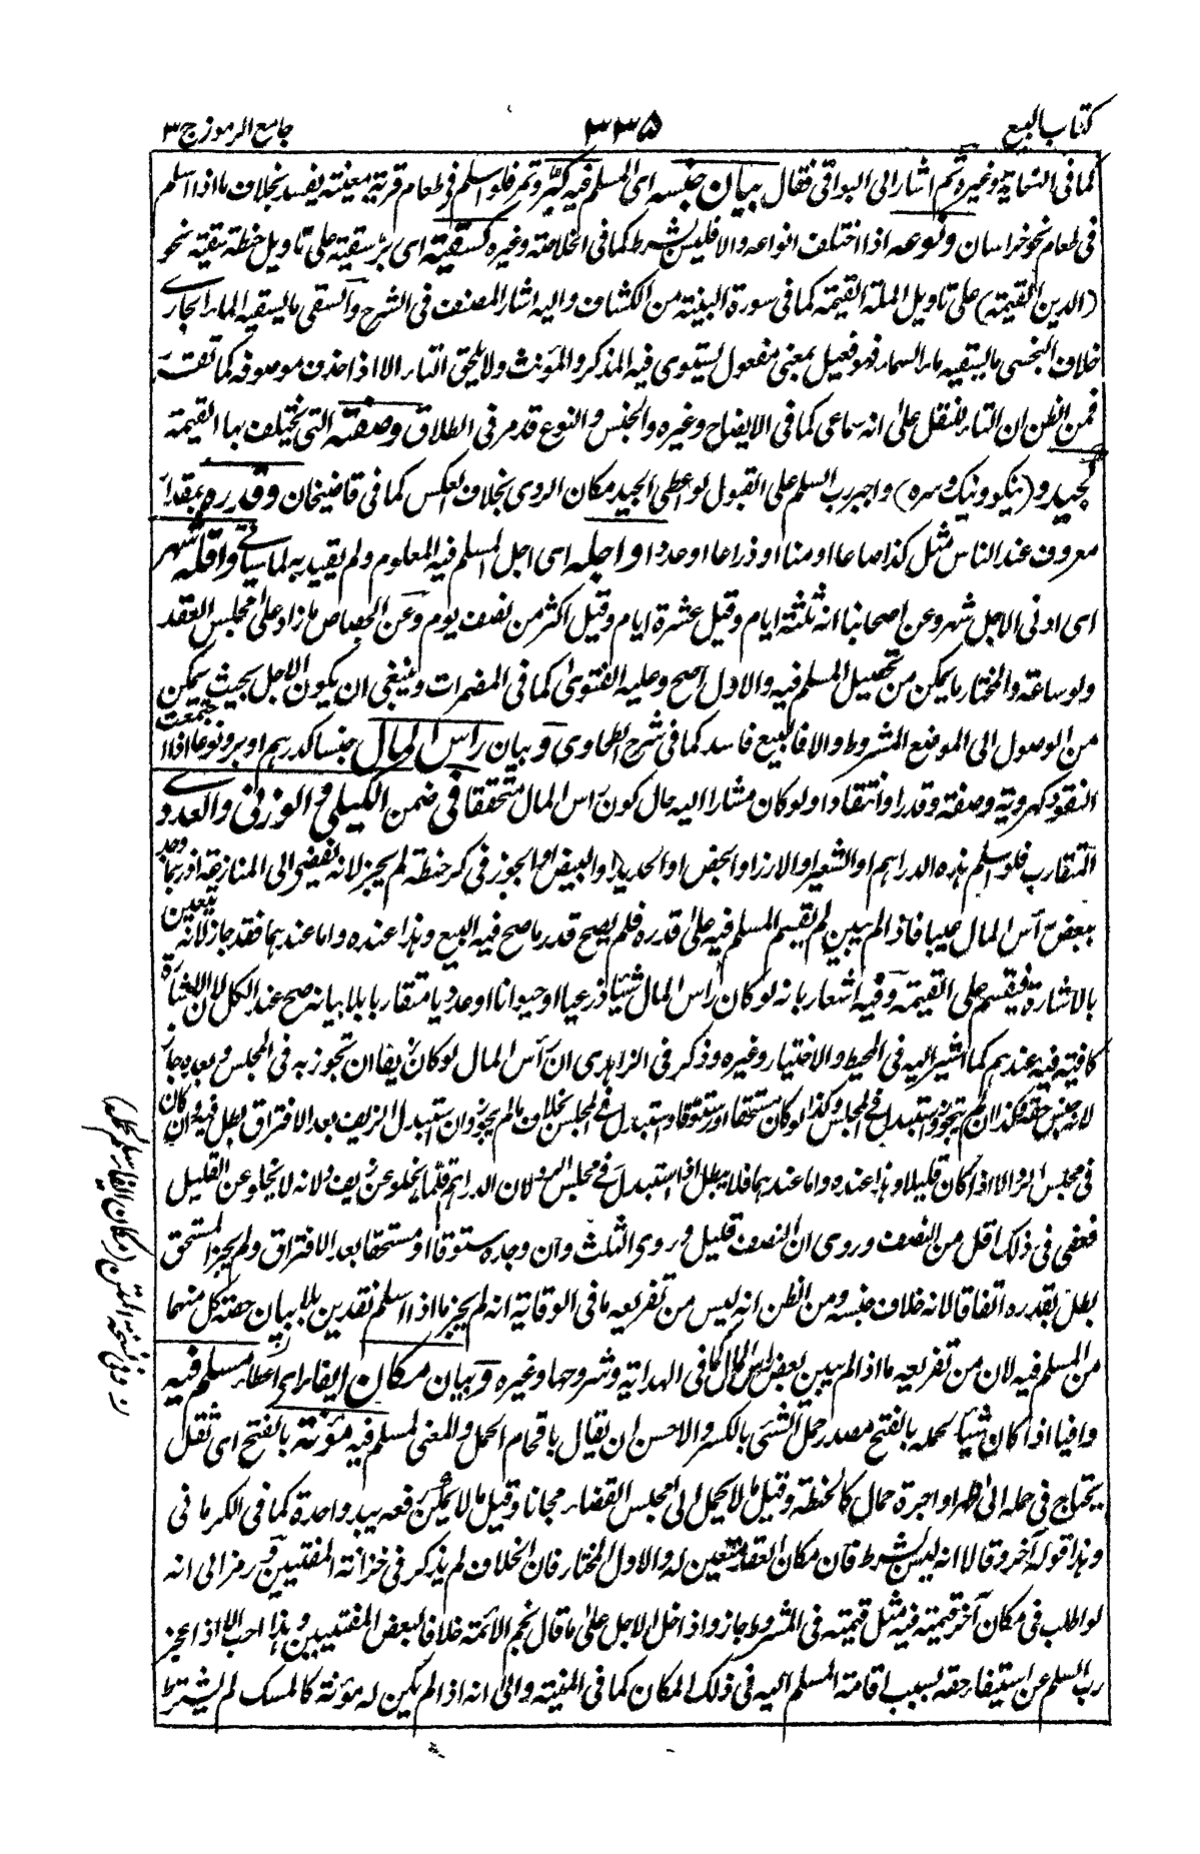 كتاب البيع ٣٣٥ جامع الرموز ج ٣
كما فى النهاية وغيره ثم اشار الى البواقى فقال بيان جنسه اى المسلم فيه كبر وتمر فلو اسلم فى طعام قرية معينة يفسد بخلاف ما اذا اسلم
فى طعام نحو خراسان ونوعه اذا اختلف انواعه والا فليس بشرط كما فى الخلاصة وغيره كسقية اى بر سقية على تاويل حنطة سقية نحو
(الدين القيمة) على تاويل الملة القيمة كما فى سورة البينة من الكشاف واليه اشار المصنف فى الشرح والسقى ما يسقيه الماء الجارى
خلاف البخسى ما يسقيه ماء السماء فهو فعيل بمعنى مفعول يستوى فيه المذكر والمؤنث ولا يلحق التاء الا اذا حذف موصوفه كما تقرر
فمن الظن ان التاء للنقل على انه سماعى كما فى الايضاح وغيره والجنس والنوع قد مر فى الطلاق وصفته التى تختلف بها القيمة
كجيد و (نيكو ونيك وسره) واجبر رب السلم على القبول لو اعطى الجيد مكان الردى بخلاف العكس كما فى قاضيخان وقدره بمقدار
معروف عند الناس مثل كذا صاعا او منا او ذراعا او عددا واجله اى اجل المسلم فيه المعلوم ولم يقيد به لما سياتى واقله شهر
اى ادنى الاجل شهر وعن اصحابنا انه ثلثة ايام وقيل عشرة ايام وقيل اكثر من نصف يوم وعن الجصاص ما زاد على مجلس العقد
ولو ساعة والمختار ما يمكن من تحصيل المسلم فيه والاول اصح وعليه الفتوى كما فى المضمرات وينبغى ان يكون الاجل بحيث يتمكن
من الوصول الى الموضع المشروط والا فالبيع فاسد كما فى شرح الطحاوى وبيان راس المال جنسا كدرهم او بر ونوعا اذا اجتمعت
النقود كهروية وصفة وقدرا وانتقادا ولو كان مشارا اليه حال كون راس المال متحققا فى ضمن الكيلى والوزنى والعددى
المتقارب فلو اسلم هذه الدراهم او الشعير او الارز او الجص او الحديد او البيض او الجوز فى كر حنطة لم يجز لانه يفضى الى المنازعة اذ ربما وجد
ببعض راس المال عيبا فاذا لم يبين لم يقسم المسلم فيه على قدره فلم يصح قدر ما صح فيه البيع وهذا عنده واما عندهما فقد جاز لانه يتعين
بالاشارة فيقسم على القيمة وفيه اشعار بانه لو كان راس المال شيئا ذرعيا او حيوانا او عدديا متقاربا بلا بيانه صح عند الكل لان الاشارة
كافية فيه عندهم كما اشير اليه فى المحيط والاختيار وغيره وذكر فى الزاهدى ان راس المال لو كان زيفا ان تجوز به فى المجلس وبعده جاز
لانه جنس حقه وكذا ان لم يتجوز واستبدل فى المجلس وكذا لو كان مستحقا او ستوقا واستبدل فى المجلس بخلاف ما لم يجز وان استبدل الزيف بعد الافتراق بطل فيه وان كان
فى مجلس الرد الا اذا كان قليلا وهذا عنده واما عندهما فلا يبطل اذا استبدل فى مجلس الرد لان الدراهم قلما يخلو عن زيف ولانه لا يخلو عن القليل
فعفى فى ذلك اقل من النصف وروى ان النصف قليل وروى الثلث وان وجده ستوقا او مستحقا بعد الافتراق ولم يجز المستحق
بطل بقدره اتفاقا لانه خلاف جنسه ومن الظن انه ليس من تفريعه ما فى الوقاية انه لم يجز ما اذا اسلم نقدين بلا بيان حصة كل منهما
من المسلم فيه لان من تفريعه ما اذا لم يبين بعض راس المال كما فى الهداية وشروحها وغيره وبيان مكان ايفاء اى اعطاء مسلم فيه
وافيا اذا كان شيئا لحمله بالفتح مصدر حمل الشئ بالكسر والاحسن ان يقال باقحام الحمل والمعنى لمسلم فيه مؤنة بالفتح اى ثقل
يحتاج فى حمله الى ظهر او اجرة حمال كالحنطة وقيل ما لا يحمل الى مجلس القضاء مجانا وقيل ما لا يمكن رفعه بيد واحدة كما فى الكرمانى
وهذا قوله آخرا وقالا انه ليس بشرط فان مكان العقد متعين له والاول المختار فان الخلاف لم يذكر فى خزانة المفتيين ورمز الى انه
لو طلب فى مكان آخر قيمته فيه مثل قيمته فى المشروط جاز واذا حل الاجل على ما قال نجم الائمة خلافا لبعض المفتيين وهذا احب الا اذا عجز
رب السلم عن استيفاء حقه بسبب اقامة المسلم اليه فى ذلك المكان كما فى المنية والى انه اذا لم يكن له مؤنة كالمسك لم يشترط
ن وفى نسخة المتن (مكان ايفاء مسلم لحمله)